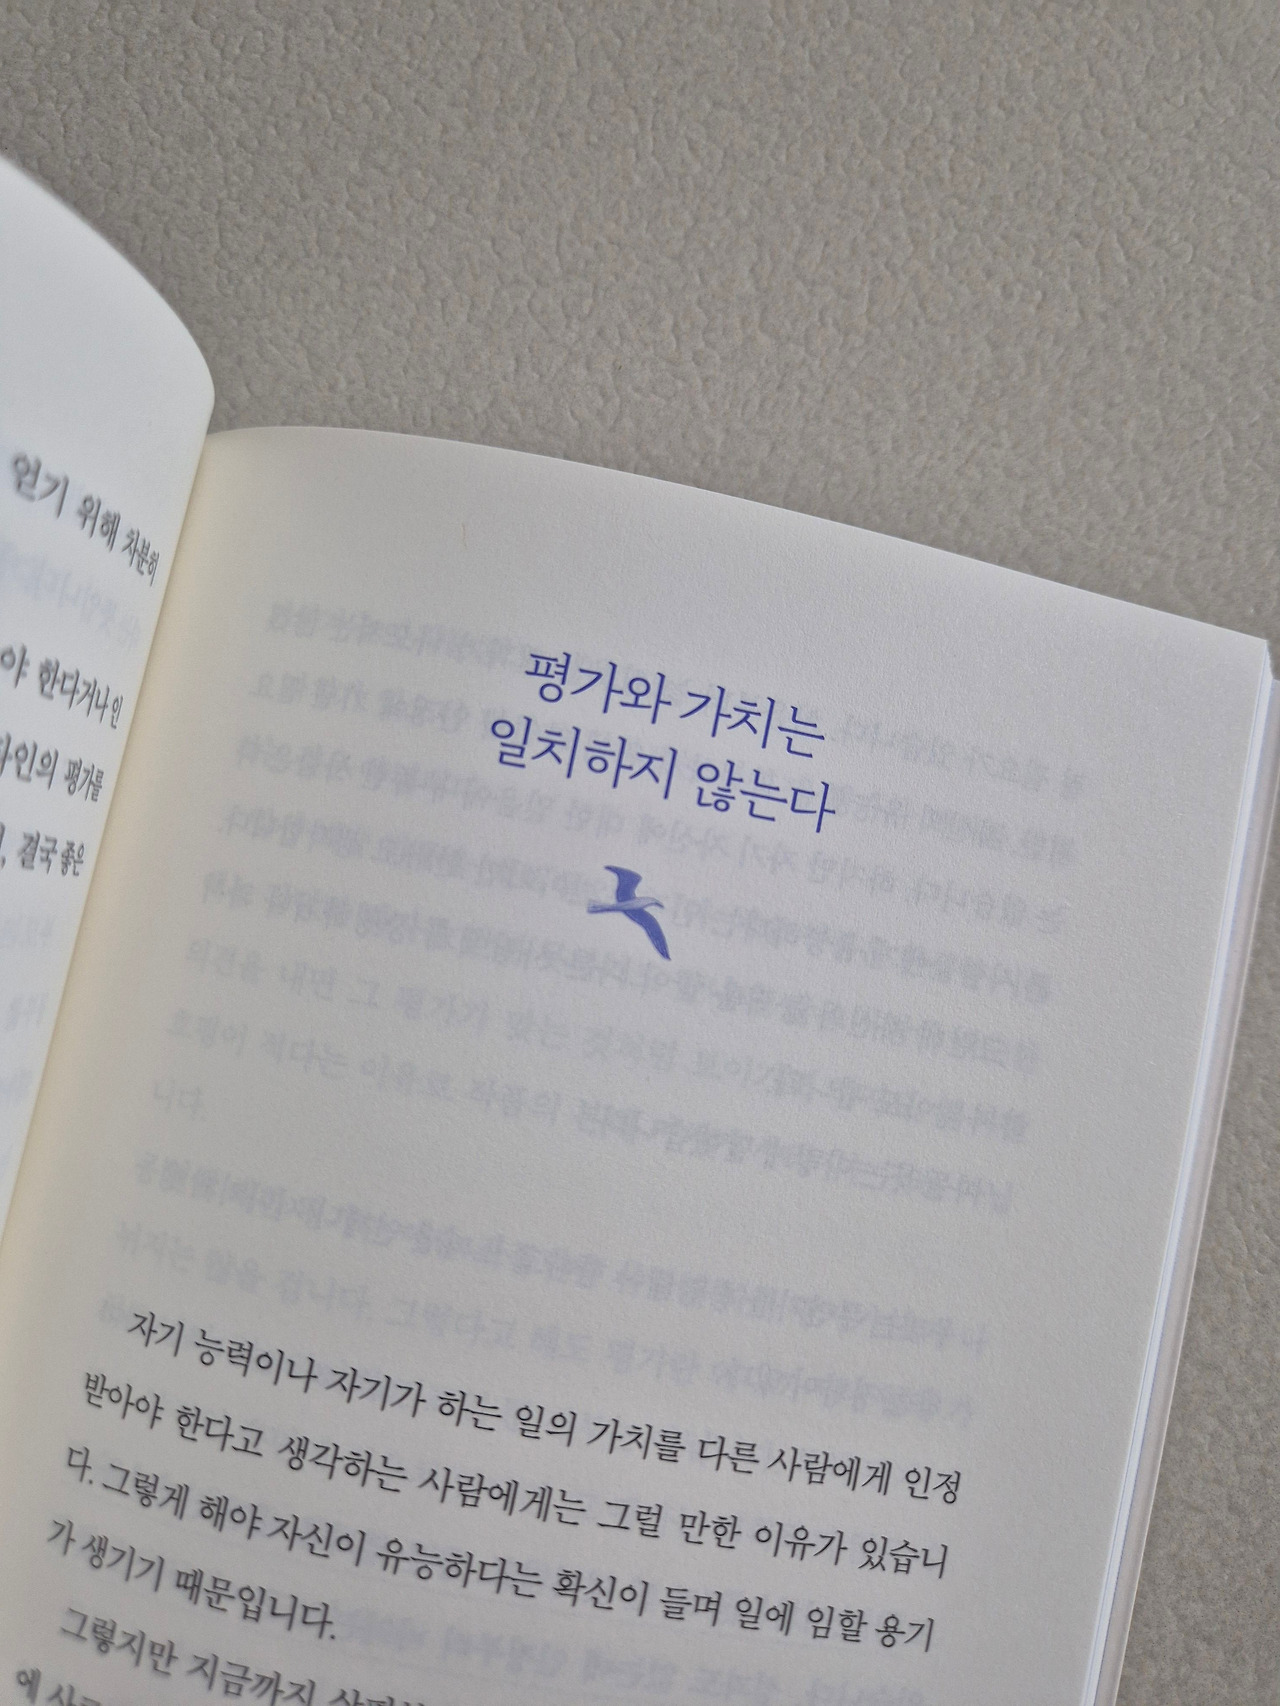 얻기 위해 차분히
야 한다거나 인
타인의 평가를
결국 좋은
평가와 가치는
일치하지 않는다
자기 능력이나 자기가 하는 일의 가치를 다른 사람에게 인정
받아야 한다고 생각하는 사람에게는 그럴 만한 이유가 있습니
다. 그렇게 해야 자신이 유능하다는 확신이 들며 일에 임할 용기
가 생기기 때문입니다.
그렇지만 지금까지